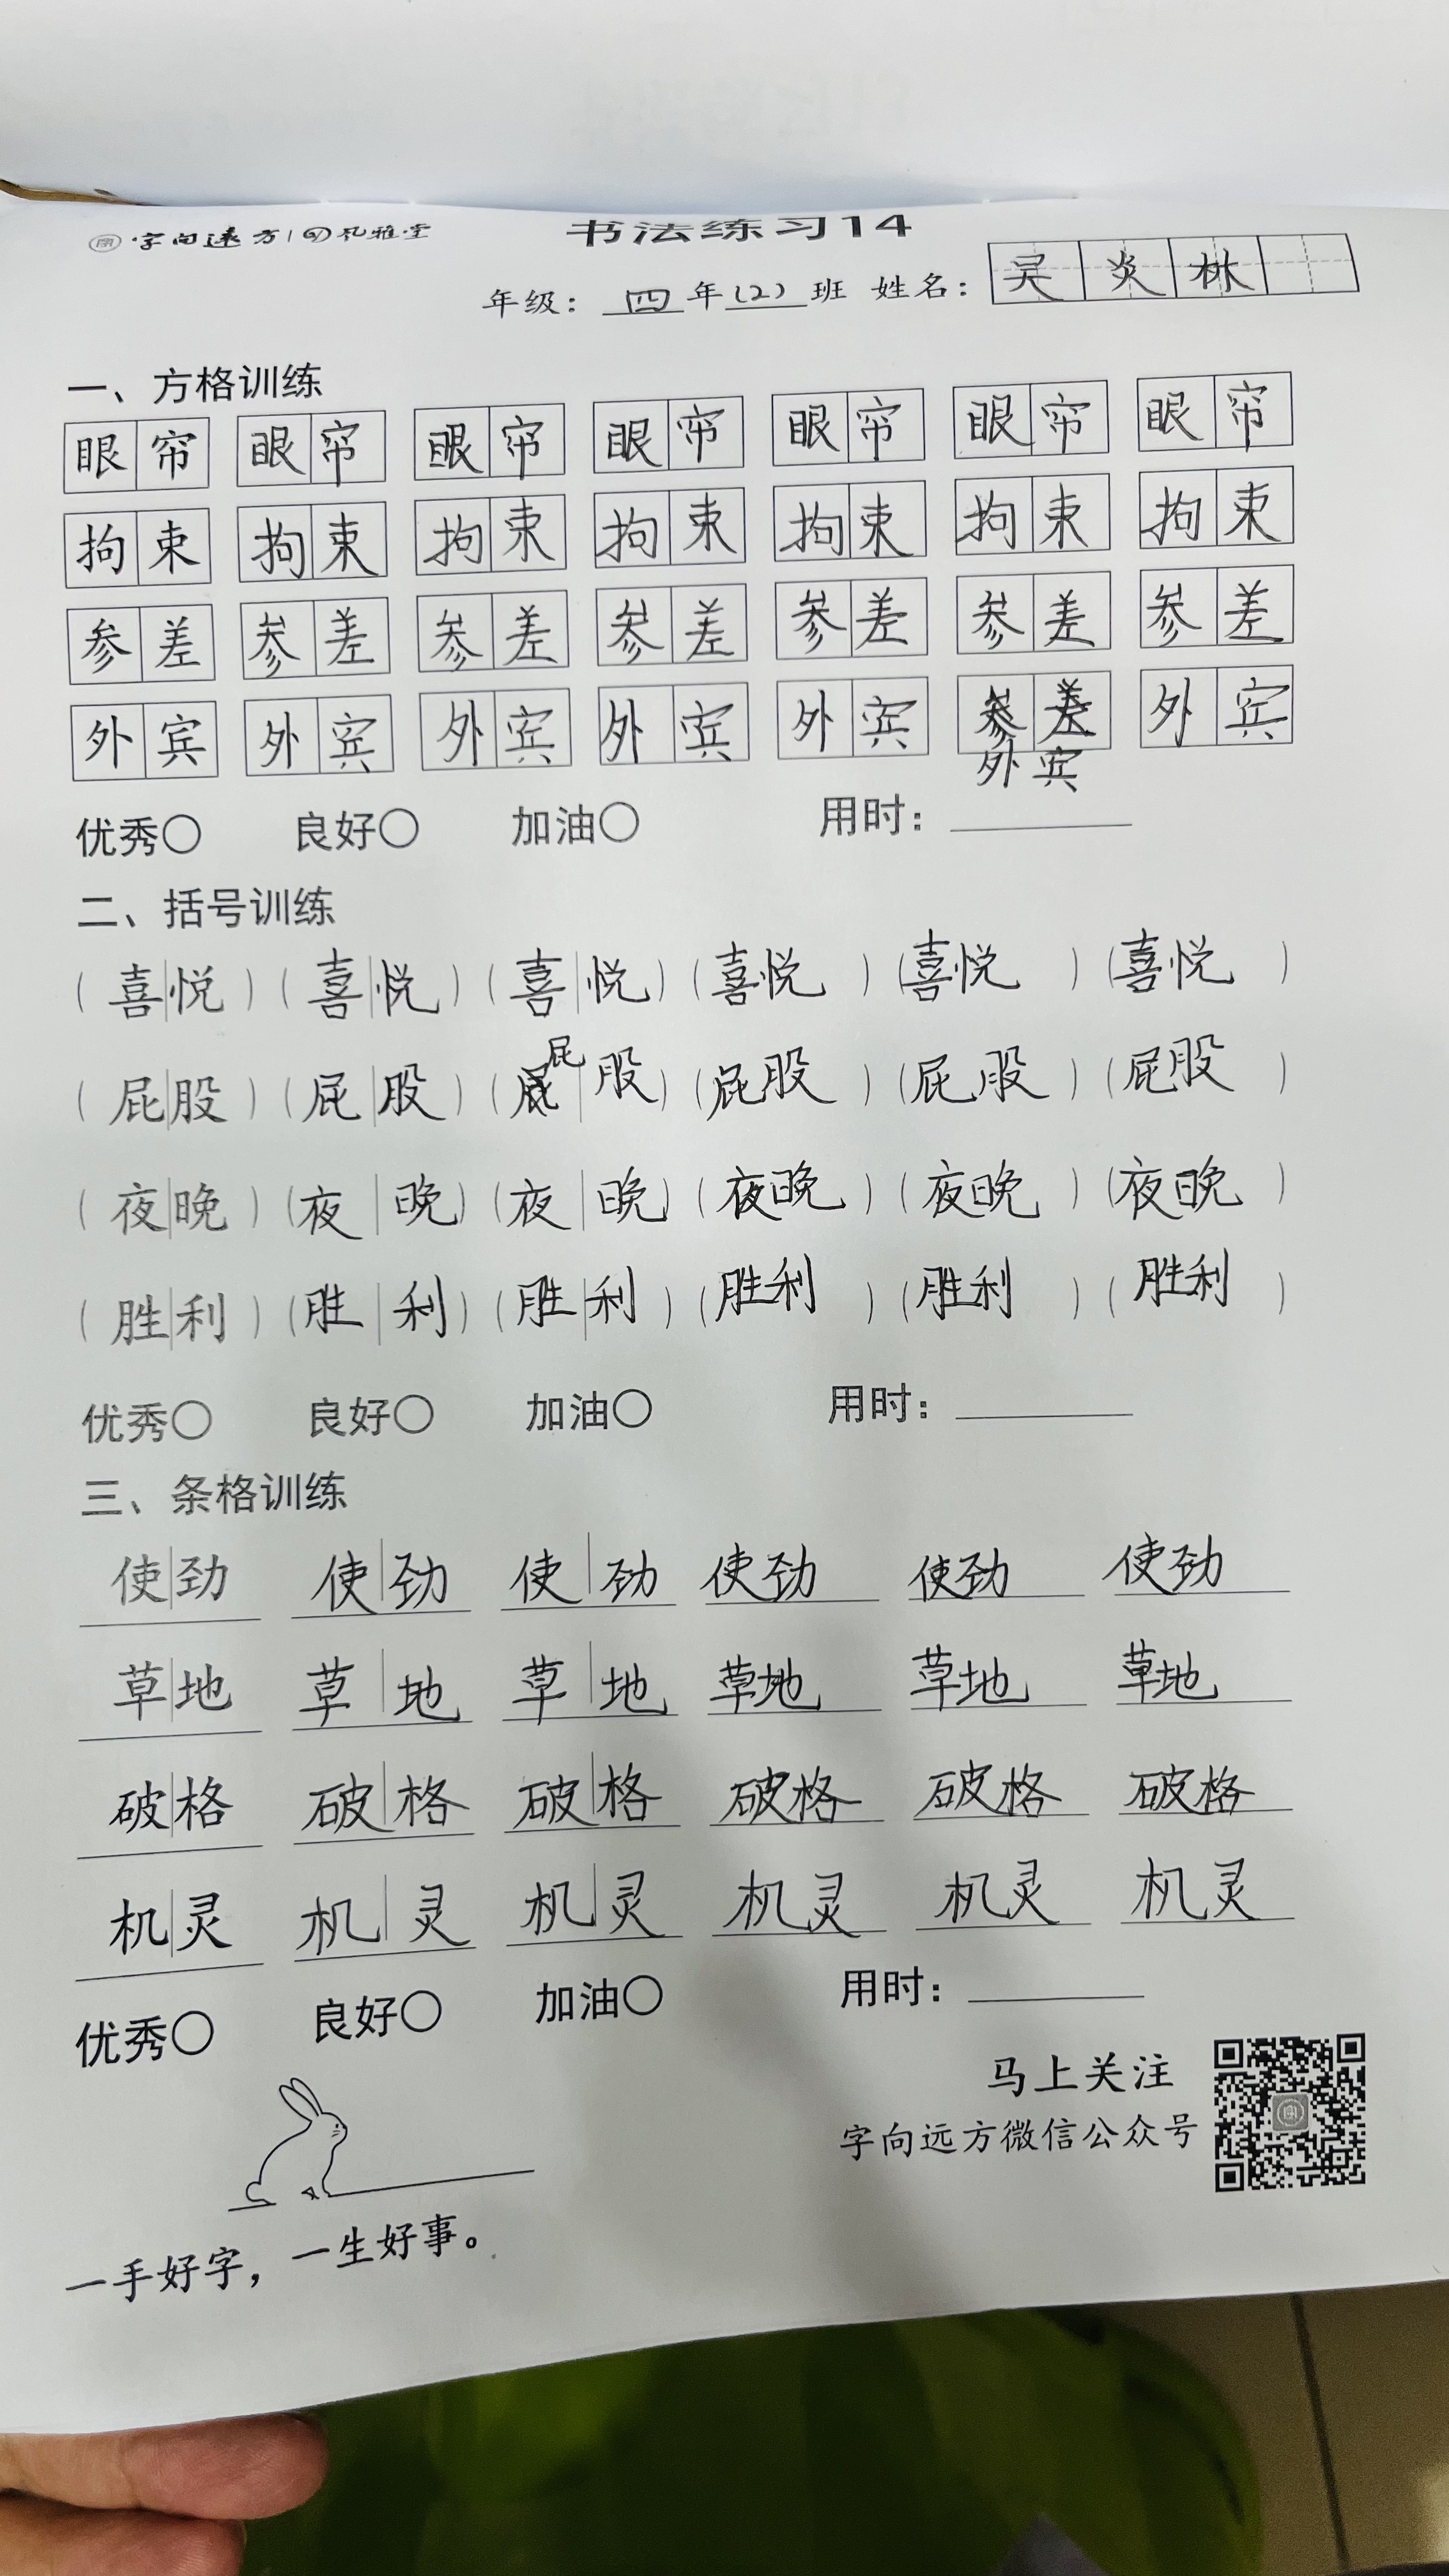 字向远方|风雅堂
书法练习14
年级：四年(2)班 姓名：吴炎林
一、方格训练
眼帘 眼帘 眼帘 眼帘 眼帘 眼帘 眼帘
拘束 拘束 拘束 拘束 拘束 拘束 拘束
参差 参差 参差 参差 参差 参差 参差
外宾 外宾 外宾 外宾 外宾 参差 外宾
外宾
优秀○ 良好○ 加油○ 用时：
二、括号训练
（喜悦）（喜悦）（喜悦）（喜悦）（喜悦）（喜悦）
屁
（屁股）（屁股）（ 股）（屁股）（屁股）（屁股）
（夜晚）（夜晚）（夜晚）（夜晚）（夜晚）（夜晚）
（胜利）（胜利）（胜利）（胜利）（胜利）（胜利）
优秀○ 良好○ 加油○ 用时：
三、条格训练
使劲 使劲 使劲 使劲 使劲 使劲
草地 草地 草地 草地 草地 草地
破格 破格 破格 破格 破格 破格
机灵 机灵 机灵 机灵 机灵 机灵
优秀○ 良好○ 加油○ 用时：
马上关注
字向远方微信公众号
一手好字，一生好事。